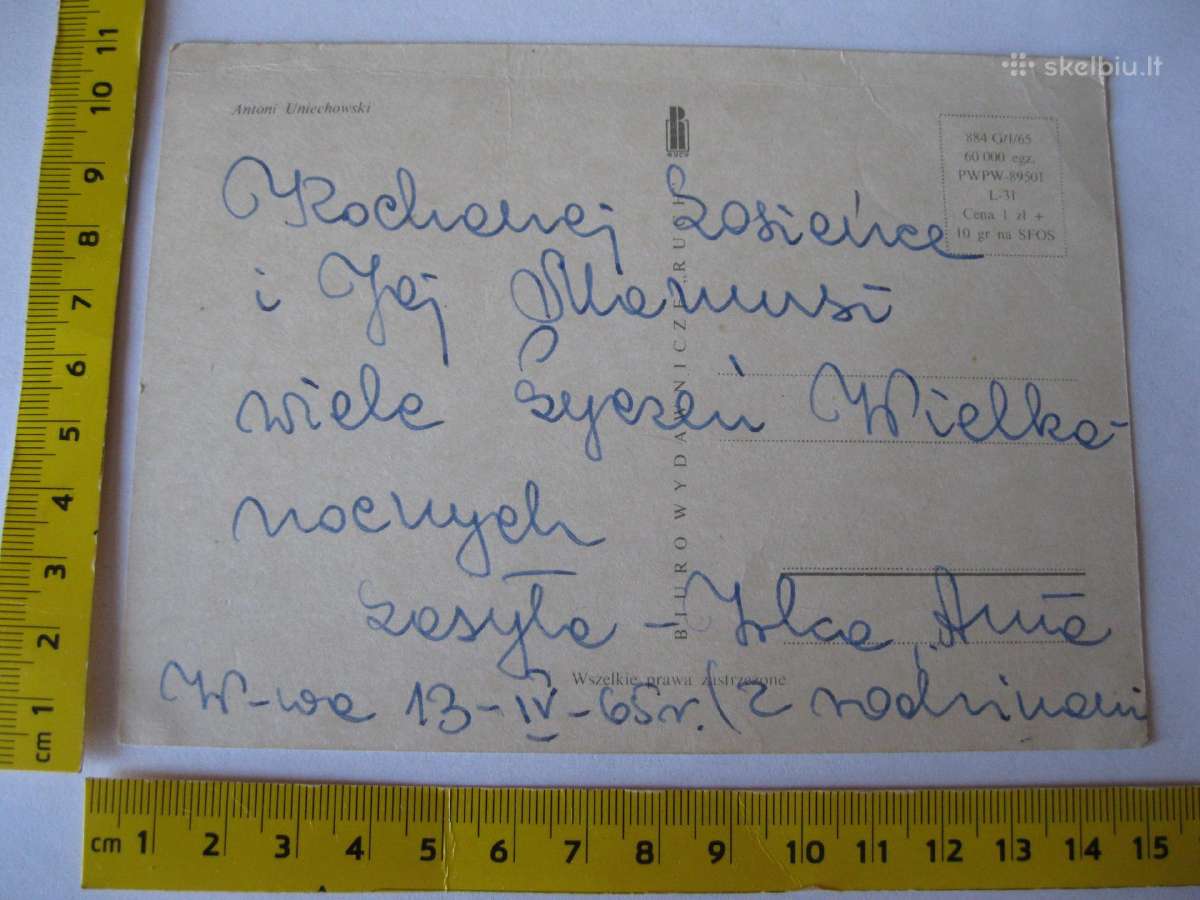 skelbiu.lt
Antoni Uniechowski
RUCH
884 G/I/65
60 000 egz.
PWPW-89501
L-31
Cena 1 zł +
10 gr na SFOS
Kochanej Zosieńce
i Jej Mamusi
wiele życzeń Wielka-
nocnych
zasyła –
W-wa 13-IV-65r. (z rodzinami
BIURO WYDAWNICZE „RUCH”
Wszelkie prawa zastrzeżone
11
10
9
8
7
6
5
4
3
2
1
cm
cm 1 2 3 4 5 6 7 8 9 10 11 12 13 14 15